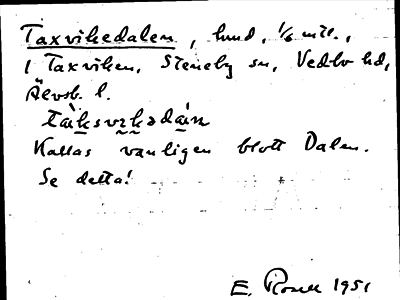 Taxvikedalen, hmd, 1/6 mtl.,
i Taxviken, Steneby sn, Vedbo hd,
Älvsb. l.
Kallas vanligen blott Dalen.
Se detta!
E. Rosell 1951